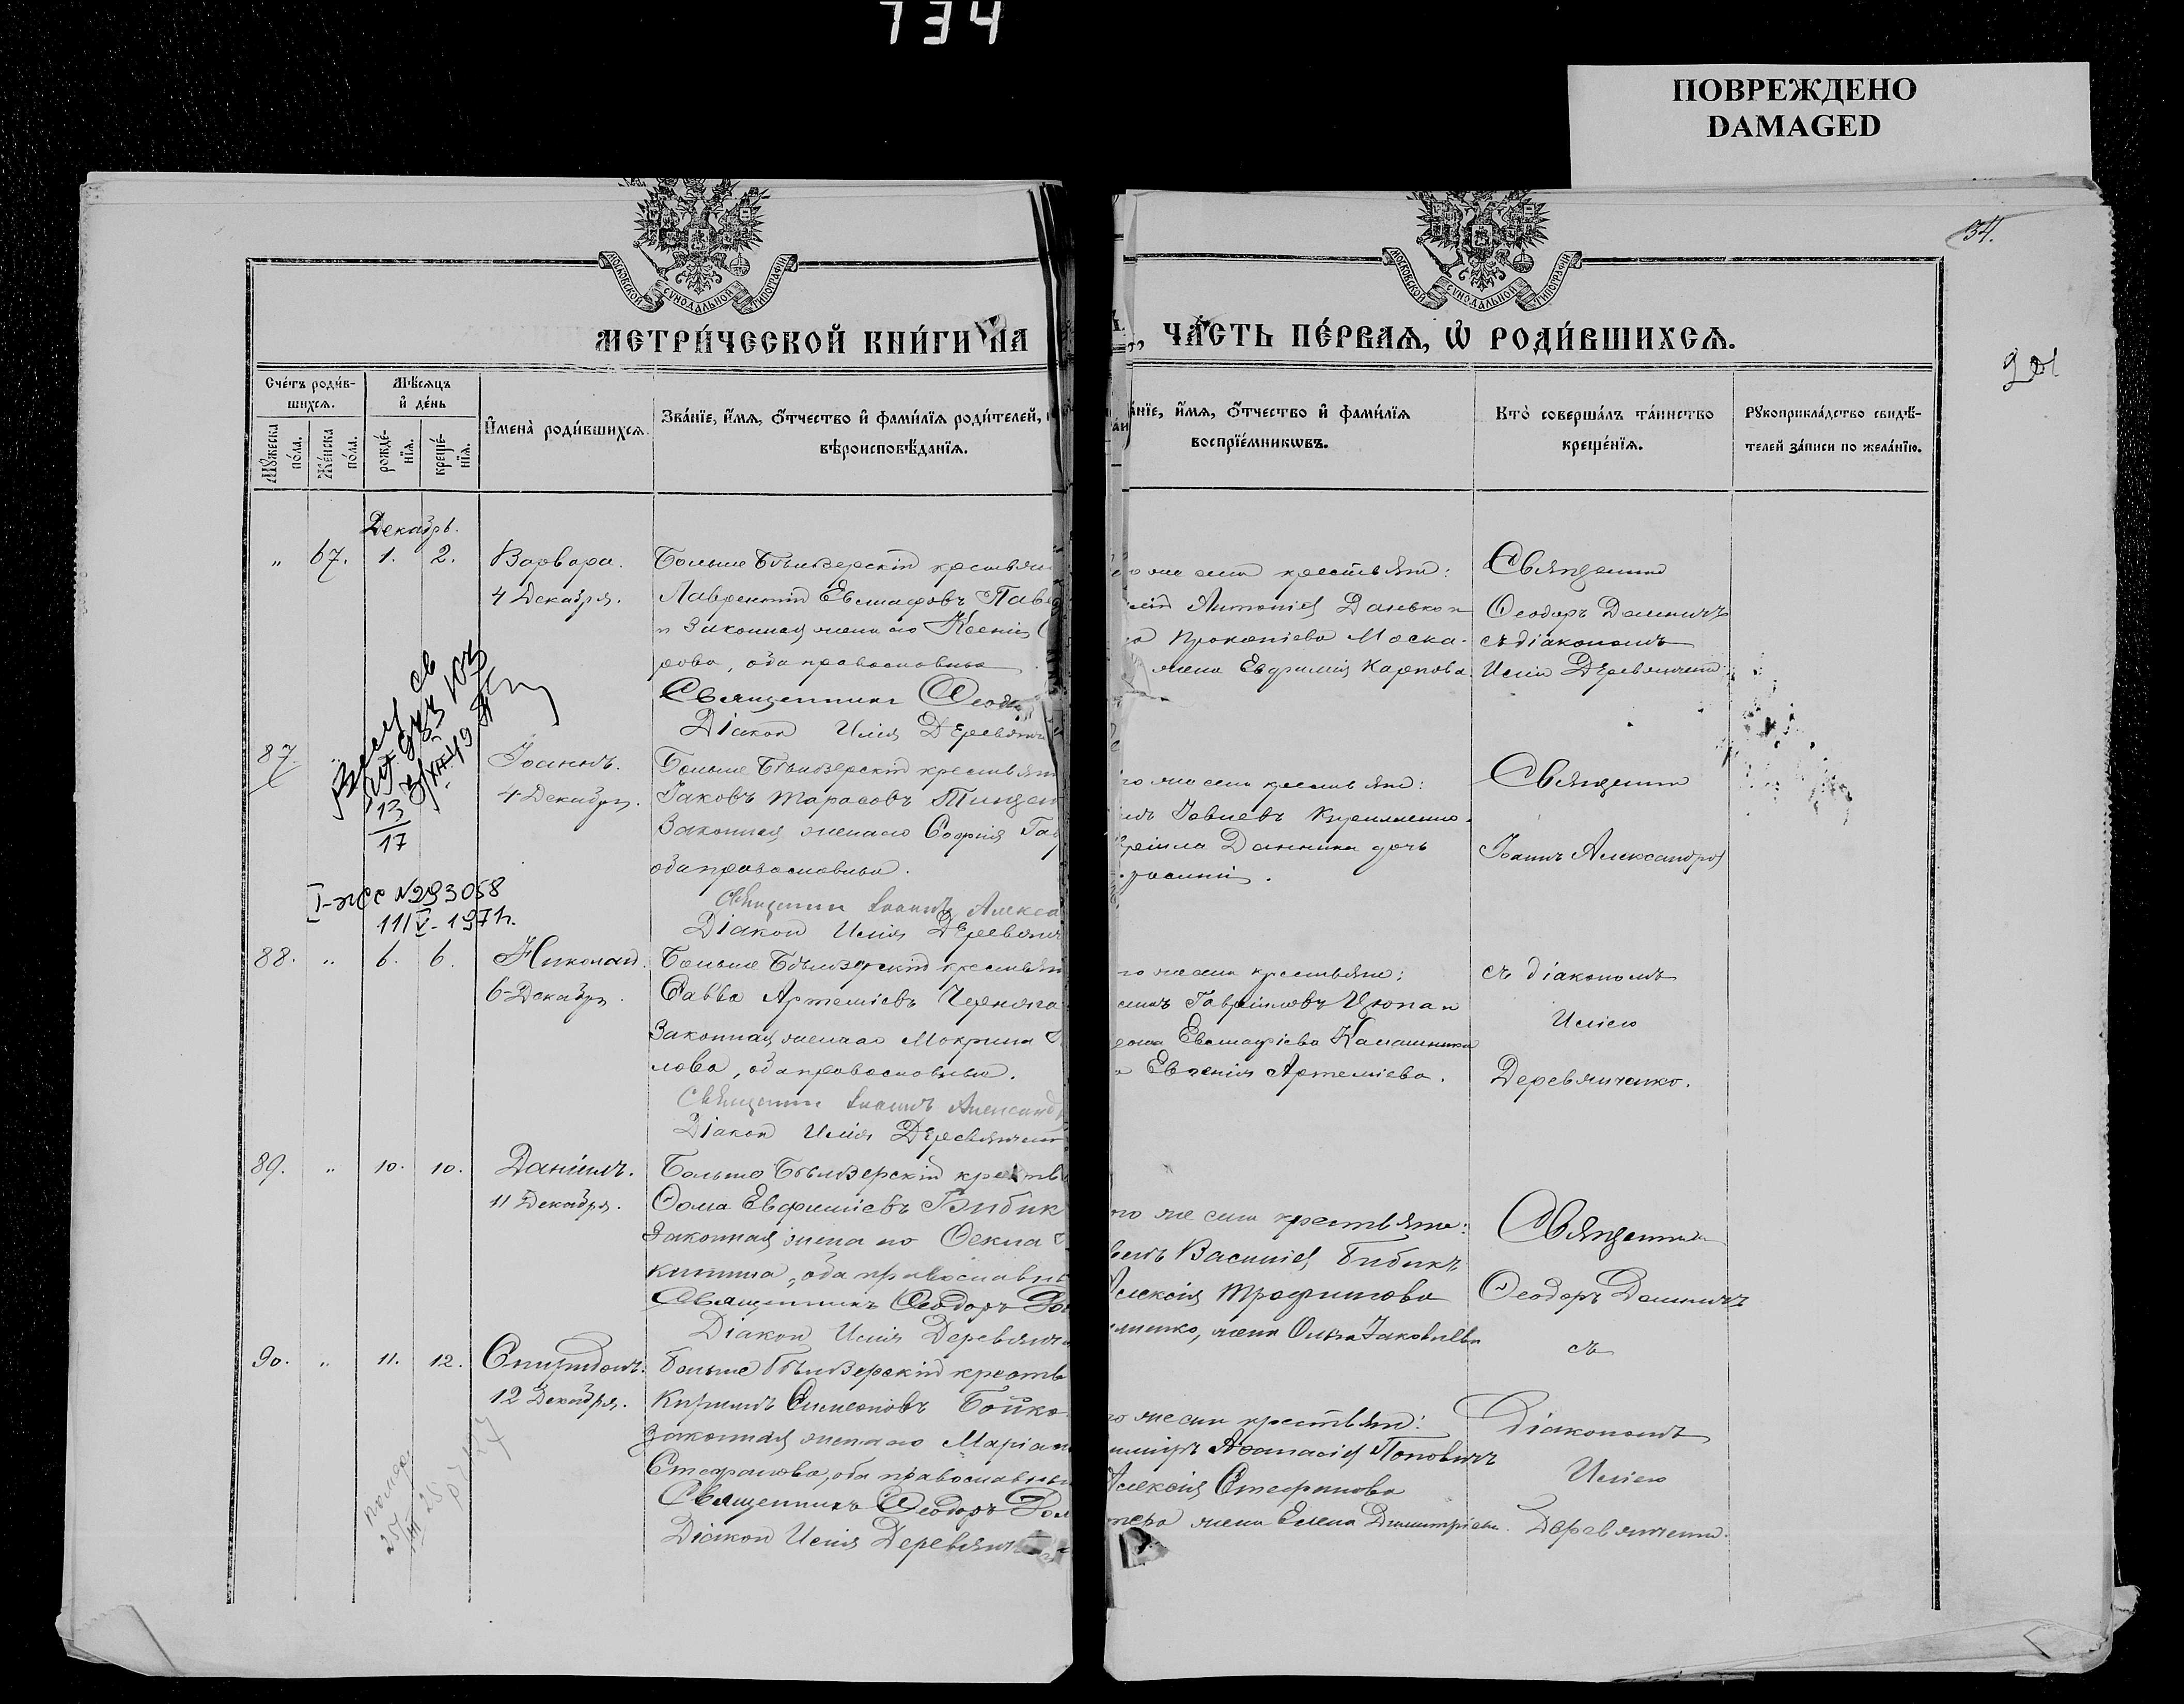 734
ПОВРЕЖДЕНО
DAMAGED
34.
МОСКОВСКОЙ СѴНОДАЛЬНОЙ ТИПОГРАФІИ
МОСКОВСКОЙ СѴНОДАЛЬНОЙ ТИПОГРАФІИ
МЕТРИ́ЧЕСКОЙ КНИ́ГИ НА
ЧА́СТЬ ПЕ́РВАЯ, Ѡ РОДИ́ВШИХСЯ.
Сче́тъ роди́в-
шихся.
Мѣ́сяцъ
и де́нь
Мꙋ́жеска по́ла.
Же́нска по́ла.
рожде́-
нія.
креще́-
нія.
И҆мена̀ роди́вшихся.
Зва́нїе, и҆́мя, ѻ҆́тчество и҆ фами́лїя роди́телей,
вѣроисповѣ́данїя.
а́нїе, и҆́мя, ѻ҆́тчество и҆ фами́лїя
воспрїе́мникѡвъ.
Кто̀ соверша́лъ та́инство
креще́нїя.
Рꙋкоприкла́дство свидѣ́-
телей за́писи по жела́нїю.
Декабрь.
" 67. 1. 2. Варвара.
4 Декабря.
Больше Бѣлозерскій крестьян
Лаврентій Евстафовъ Пав
и законная жена его Ксенія
рова, оба православные
Священникъ Ѳеод
Діаконъ Илія Деревянч
го же села крестьяне:
Антоніев Данько и
Прокопіева Моска-
жена Евфимія Карпова
Священникъ
Ѳеодоръ Доминичъ
съ діакономъ
Илія Деревянченко
87. "
13
17
Іоаннъ.
4 Декабря.
Больше Бѣлозерскій крестьян
Іаковъ Тарасовъ Тищен
Законная жена его Софія Гав
оба православные.
Священникъ Іоаннъ Алекса
Діаконъ Илія Деревянч
го же села крестьяне:
Іовлевъ
дочь
Священникъ
Іоаннъ Александров
I-ЖС №293058
11/V-1971г.
88. " 6. 6. Николай.
6 Декабря.
Больше Бѣлозерскій крестьян
Савва Артеміевъ Черняга
Законная жена его Мокрина
лова, оба православные.
Священникъ Іоаннъ Александр
Діаконъ Илія Деревянчен
го же села крестьяне:
Гавріиловъ Цюпа и
Евстафіева Калашника
Евгенія Артеміева.
съ діакономъ
Иліею
Деревянченко.
89. " 10. 10. Даніилъ.
11 Декабря.
Больше Бѣлозерскій крестья
Ѳома Евфиміевъ Бибик
Законная жена его Ѳекла
китина, оба православные
Священникъ Ѳеодоръ Дом
Діаконъ Илія Деревянч
го же села крестьяне:
Василіев Бибикъ
Алексія Трофимова
жена Ольга Іаковлева
Священникъ
Ѳеодоръ Доминичъ
съ
90. " 11. 12. Спиридонъ.
12 Декабря.
Больше Бѣлозерскій крестья
Кириллъ Симеоновъ Бойко
Законная жена его Маріан
Стефанова, оба православные
Священникъ Ѳеодоръ Дом
Діаконъ Илія Деревянч
го же села крестьяне:
Аѳанасіев Поповичъ
Алексія Стефанова
жена Елена Димитріева.
Діакономъ
Иліею
Деревянченко.